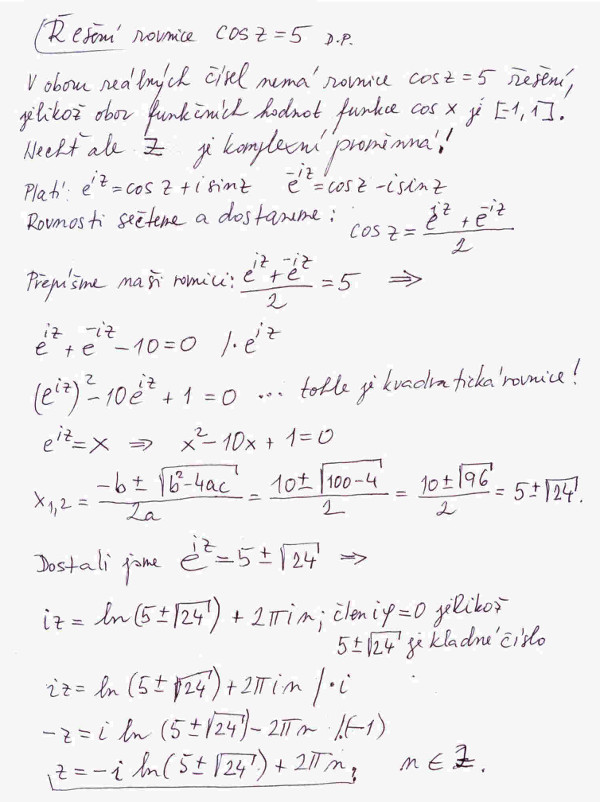 Řešení rovnice cos z = 5 D.P.
V oboru reálných čísel nemá rovnice cos z = 5 řešení,
jelikož obor funkčních hodnot funkce cos x je [-1,1].
Nechť ale z je komplexní proměnná!
Platí: e^{iz} = cos z + i sin z e^{-iz} = cos z - i sin z
Rovnosti sečteme a dostaneme: cos z = (e^{iz} + e^{-iz})/2
Přepíšme naši rovnici: (e^{iz} + e^{-iz})/2 = 5 ⇒
e^{iz} + e^{-iz} - 10 = 0 /· e^{iz}
(e^{iz})² - 10e^{iz} + 1 = 0 ... tohle je kvadratická rovnice!
e^{iz} = x ⇒ x² - 10x + 1 = 0
x_{1,2} = (-b ± √(b² - 4ac))/2a = (10 ± √(100 - 4))/2 = (10 ± √96)/2 = 5 ± √24.
Dostali jsme e^{iz} = 5 ± √24 ⇒
iz = ln(5 ± √24) + 2πin; člen iφ = 0 jelikož
5 ± √24 je kladné číslo
iz = ln(5 ± √24) + 2πin /· i
-z = i ln(5 ± √24) - 2πn /·(-1)
z = -i ln(5 ± √24) + 2πn, n ∈ Z.